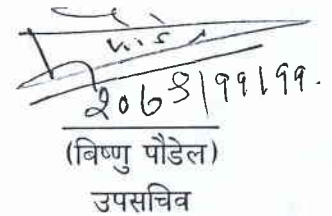 २०७९|११|११.
(बिष्णु पौडेल)
उपसचिव